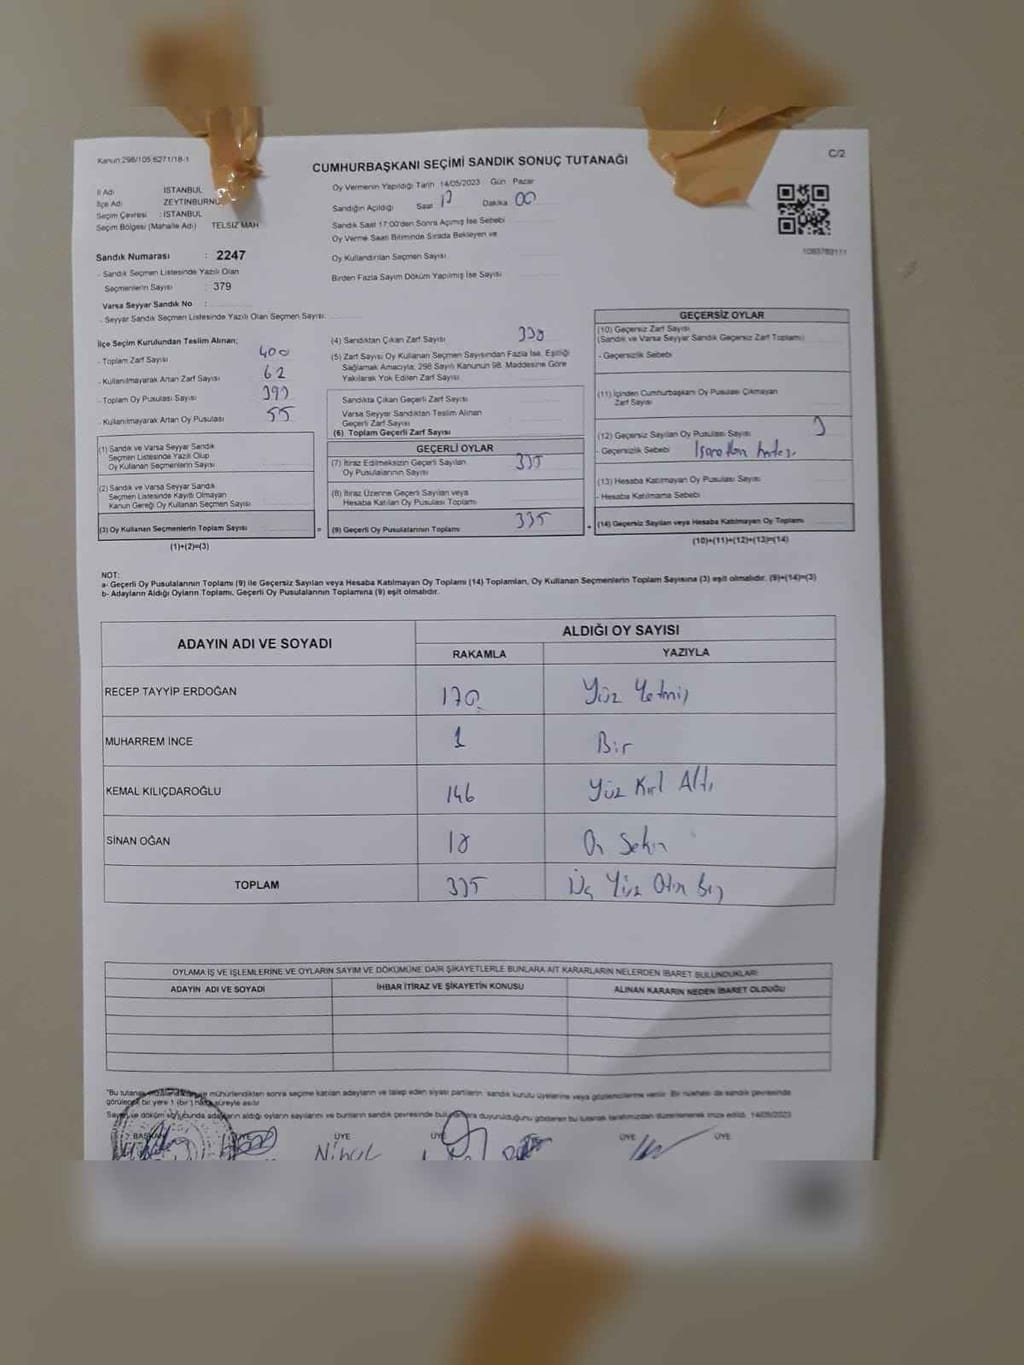 Kanun 298/105 6271/18-1
CUMHURBAŞKANI SEÇİMİ SANDIK SONUÇ TUTANAĞI
C/2
İl Adı İSTANBUL
İlçe Adı ZEYTİNBURNU
Seçim Çevresi : İSTANBUL
Seçim Bölgesi (Mahalle Adı) TELSİZ MAH
Oy Vermenin Yapıldığı Tarih 14/05/2023 Gün Pazar
Sandığın Açıldığı Saat Dakika 00
Sandık Saat 17:00'den Sonra Açılmış İse Sebebi
Oy Verme Saati Bitiminde Sırada Bekleyen ve
Oy Kullandırılan Seçmen Sayısı
Birden Fazla Sayım Döküm Yapılmış İse Sayısı
Sandık Numarası : 2247
- Sandık Seçmen Listesinde Yazılı Olan
Seçmenlerin Sayısı : 379
Varsa Seyyar Sandık No :
- Seyyar Sandık Seçmen Listesinde Yazılı Olan Seçmen Sayısı:
İlçe Seçim Kurulundan Teslim Alınan;
- Toplam Zarf Sayısı 400
- Kullanılmayarak Artan Zarf Sayısı 62
- Toplam Oy Pusulası Sayısı 393
- Kullanılmayarak Artan Oy Pusulası 55
(1) Sandık ve Varsa Seyyar Sandık
Seçmen Listesinde Yazılı Olup
Oy Kullanan Seçmenlerin Sayısı
(2) Sandık ve Varsa Seyyar Sandık
Seçmen Listesinde Kayıtlı Olmayan
Kanun Gereği Oy Kullanan Seçmen Sayısı
(3) Oy Kullanan Seçmenlerin Toplam Sayısı =
(1)+(2)=(3)
(4) Sandıktan Çıkan Zarf Sayısı 338
(5) Zarf Sayısı Oy Kullanan Seçmen Sayısından Fazla İse, Eşitliği
Sağlamak Amacıyla; 298 Sayılı Kanunun 98. Maddesine Göre
Yakılarak Yok Edilen Zarf Sayısı
Sandıkta Çıkan Geçerli Zarf Sayısı
Varsa Seyyar Sandıktan Teslim Alınan
Geçerli Zarf Sayısı
(6) Toplam Geçerli Zarf Sayısı
GEÇERLİ OYLAR
(7) İtiraz Edilmeksizin Geçerli Sayılan
Oy Pusulalarının Sayısı 335
(8) İtiraz Üzerine Geçerli Sayılan veya
Hesaba Katılan Oy Pusulası Toplamı
(9) Geçerli Oy Pusulalarının Toplamı 335 +
GEÇERSİZ OYLAR
(10) Geçersiz Zarf Sayısı
(Sandık ve Varsa Seyyar Sandık Geçersiz Zarf Toplamı)
- Geçersizlik Sebebi
(11) İçinden Cumhurbaşkanı Oy Pusulası Çıkmayan
Zarf Sayısı
(12) Geçersiz Sayılan Oy Pusulası Sayısı 3
- Geçersizlik Sebebi
(13) Hesaba Katılmayan Oy Pusulası Sayısı
- Hesaba Katılmama Sebebi
(14) Geçersiz Sayılan veya Hesaba Katılmayan Oy Toplamı
(10)+(11)+(12)+(13)=(14)
NOT:
a- Geçerli Oy Pusulalarının Toplamı (9) ile Geçersiz Sayılan veya Hesaba Katılmayan Oy Toplamı (14) Toplamları, Oy Kullanan Seçmenlerin Toplam Sayısına (3) eşit olmalıdır. (9)+(14)=(3)
b- Adayların Aldığı Oyların Toplamı, Geçerli Oy Pusulalarının Toplamına (9) eşit olmalıdır.
ADAYIN ADI VE SOYADI ALDIĞI OY SAYISI
RAKAMLA YAZIYLA
RECEP TAYYİP ERDOĞAN 170 Yüz Yetmiş
MUHARREM İNCE 1 Bir
KEMAL KILIÇDAROĞLU 146 Yüz Kırk Altı
SİNAN OĞAN 18 On Sekiz
TOPLAM 335 Üç Yüz Otuz Beş
OYLAMA İŞ VE İŞLEMLERİNE VE OYLARIN SAYIM VE DÖKÜMÜNE DAİR ŞİKAYETLERLE BUNLARA AİT KARARLARIN NELERDEN İBARET BULUNDUKLARI
ADAYIN ADI VE SOYADI İHBAR İTİRAZ VE ŞİKAYETİN KONUSU ALINAN KARARIN NEDEN İBARET OLDUĞU
"Bu tutanak mühürlendikten sonra seçime katılan adayların ve talep eden siyasi partilerin sandık kurulu üyelerine veya gözlemcilerine verilir. Bir nüshası da sandık çevresinde
görülecek bir yere 1 (bir) hafta süreyle asılır
Sayım ve döküm sonucunda adayların aldığı oyların sayılarını ve bunların sandık çevresinde duyurulduğunu gösteren bu tutanak tarafımızdan düzenlenerek imza edildi. 14/05/2023
BAŞKAN ÜYE ÜYE ÜYE ÜYE ÜYE